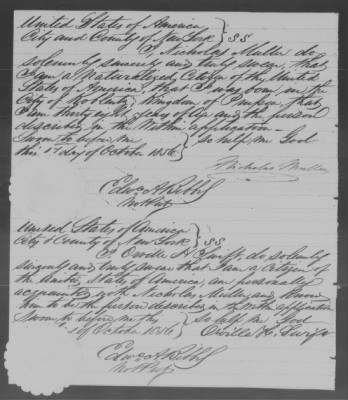 United States of America
City and County of New York } SS
I, Nicholas Muller do
solemnly sincerely and truly swear, that
I am a Naturalized Citizen of the United
States of America, that I was born in the
City of Kingdom of that
I am thirty eight years of age and the person
described in the Within application
Sworn to before me } So help me God
this 1st day of October 1856 }
Nicholas Muller
Edw. A.
Not Pub
United States of America
City & County of New York } SS
I Orville H Swift, do solemnly
sincerely and truly swear that I am a Citizen of
the United States of America, am personally
acquainted with Nicholas Muller and know
him to be the person described in the within application
Sworn to before me this } So help me God
1st of October 1856 } Orville H. Swift
Edw. A.
Not Pub